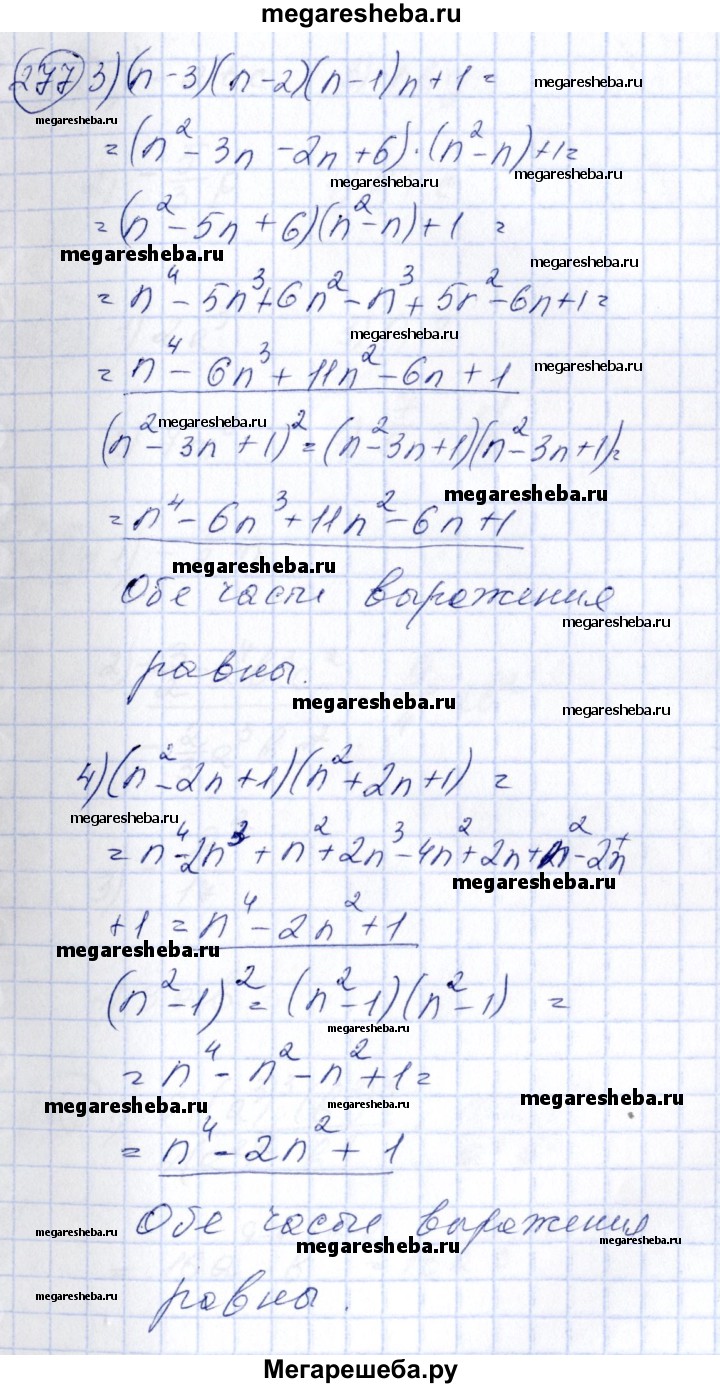 megaresheba.ru
277 3) (n-3)(n-2)(n-1)n+1=
megaresheba.ru
megaresheba.ru
=(n²-3n-2n+6)·(n²-n)+1=
megaresheba.ru
megaresheba.ru
=(n²-5n+6)(n²-n)+1=
megaresheba.ru
megaresheba.ru
=n⁴-5n³+6n²-n³+5n²-6n+1=
megaresheba.ru
=n⁴-6n³+11n²-6n+1
megaresheba.ru
megaresheba.ru
(n²-3n+1)²=(n²-3n+1)(n²-3n+1)=
megaresheba.ru
=n⁴-6n³+11n²-6n+1
megaresheba.ru
Обе части выражения
megaresheba.ru
равны.
megaresheba.ru
megaresheba.ru
4)(n²-2n+1)(n²+2n+1)=
megaresheba.ru
megaresheba.ru
=n⁴-2n³+n²+2n³-4n²+2n+n²-2n+
megaresheba.ru
+1=n⁴-2n²+1
megaresheba.ru
megaresheba.ru
(n²-1)²=(n²-1)(n²-1)=
megaresheba.ru
megaresheba.ru
=n⁴-n²-n²+1=
megaresheba.ru
megaresheba.ru
megaresheba.ru
=n⁴-2n²+1
Обе части выражения
megaresheba.ru
megaresheba.ru
megaresheba.ru
равны.
megaresheba.ru
megaresheba.ru
Мегарешеба.ру